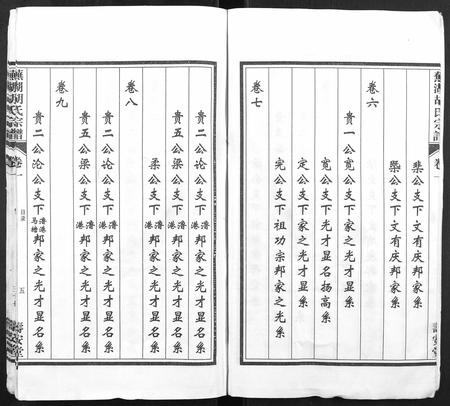 蕪湖胡氏宗譜
卷一
棐公支下文有庆邦家系
槩公支下文有庆邦家系
卷六
貴一公寬公支下家之光才显系
寬公支下光才显名扬高系
定公支下家之光才显系
完公支下祖功宗邦家之光系
卷七
壽安堂
貴二公论公支下潛港邦家之光才显名系
貴五公梁公支下潛港邦家之光才显名系
柔公支下潛港邦家之光才显名系
卷八
貴二公论公支下潛港邦家之光才显名系
貴五公梁公支下潛港邦家之光才显名系
卷九
貴二公沦公支下潛港馬橋邦家之光才显名系
蕪湖胡氏宗譜
卷一
目录
五
壽安堂